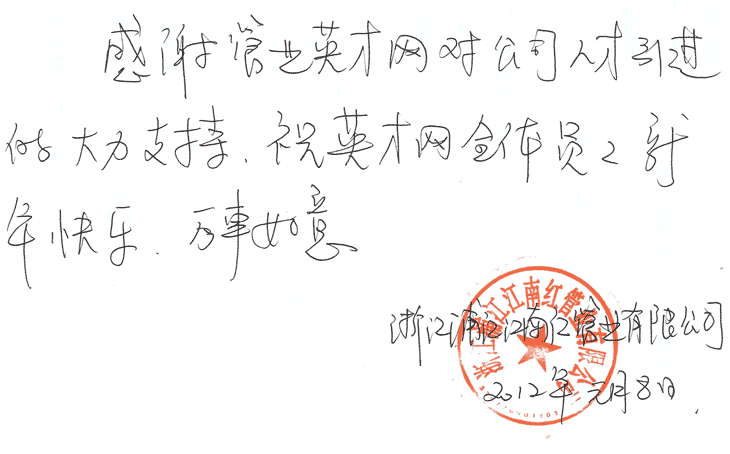 感谢管业英才网对公司人才引进
的大力支持、祝英才网全体员工新
年快乐、万事如意
浙江浦江江南红管业有限公司
浙江浦江江南红管业有限公司
2012年元月8日